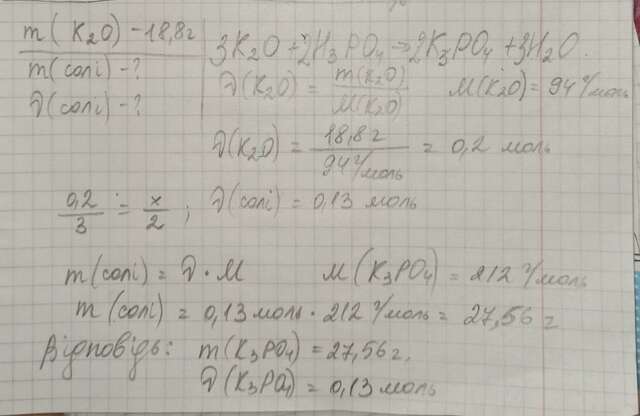 m(K₂O) - 18,8г
m(солі) - ?
ν(солі) - ?
3K₂O + 2H₃PO₄ → 2K₃PO₄ + 3H₂O.
ν(K₂O) = m(K₂O) / M(K₂O)    M(K₂O) = 94 г/моль
ν(K₂O) = 18,8г / 94 г/моль = 0,2 моль
0,2/3 = x/2 ; ν(солі) = 0,13 моль
m(солі) = ν · M    M(K₃PO₄) = 212 г/моль
m(солі) = 0,13 моль · 212 г/моль = 27,56 г
Відповідь: m(K₃PO₄) = 27,56г,
ν(K₃PO₄) = 0,13 моль